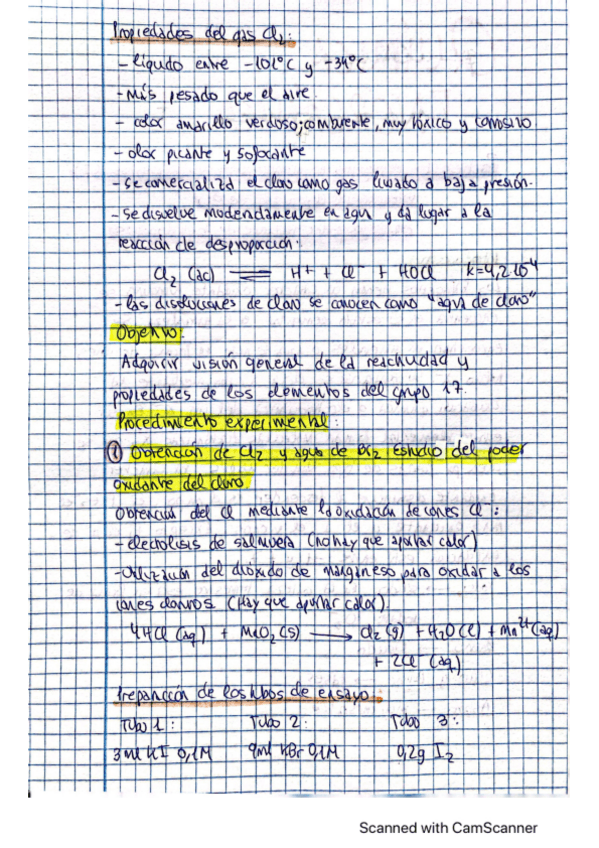 Propiedades del gas Cl2:
- líquido entre -101ºC y -34ºC
- Más pesado que el aire.
- color amarillo verdoso; comburente, muy tóxico y corrosivo.
- olor picante y sofocante
- se comercializa el cloro como gas licuado a baja presión.
- se disuelve moderadamente en agua y da lugar a la
reacción de desproporción:
Cl2 (ac) ⇌ H+ + Cl- + HOCl K=4,2·10-4
- las disoluciones de cloro se conocen como "agua de cloro"
Objetivo:
Adquirir visión general de la reactividad y
propiedades de los elementos del grupo 17.
Procedimiento experimental:
① Obtención de Cl2 y agua de Cl2 Estudio del poder
oxidante del cloro
Obtención del Cl mediante la oxidación de iones Cl-:
- electrolisis de salmuera (no hay que aportar calor)
- Utilización del dióxido de manganeso para oxidar a los
iones cloruros (Hay que aportar calor).
4HCl (aq) + MnO2 (s) → Cl2 (g) + H2O (l) + Mn2+ (aq)
+ 2Cl- (aq)
Preparación de los tubos de ensayo:
Tubo 1: Tubo 2: Tubo 3:
3ml KI 0,1M 9ml KBr 0,1M 0,2g I2
Scanned with CamScanner